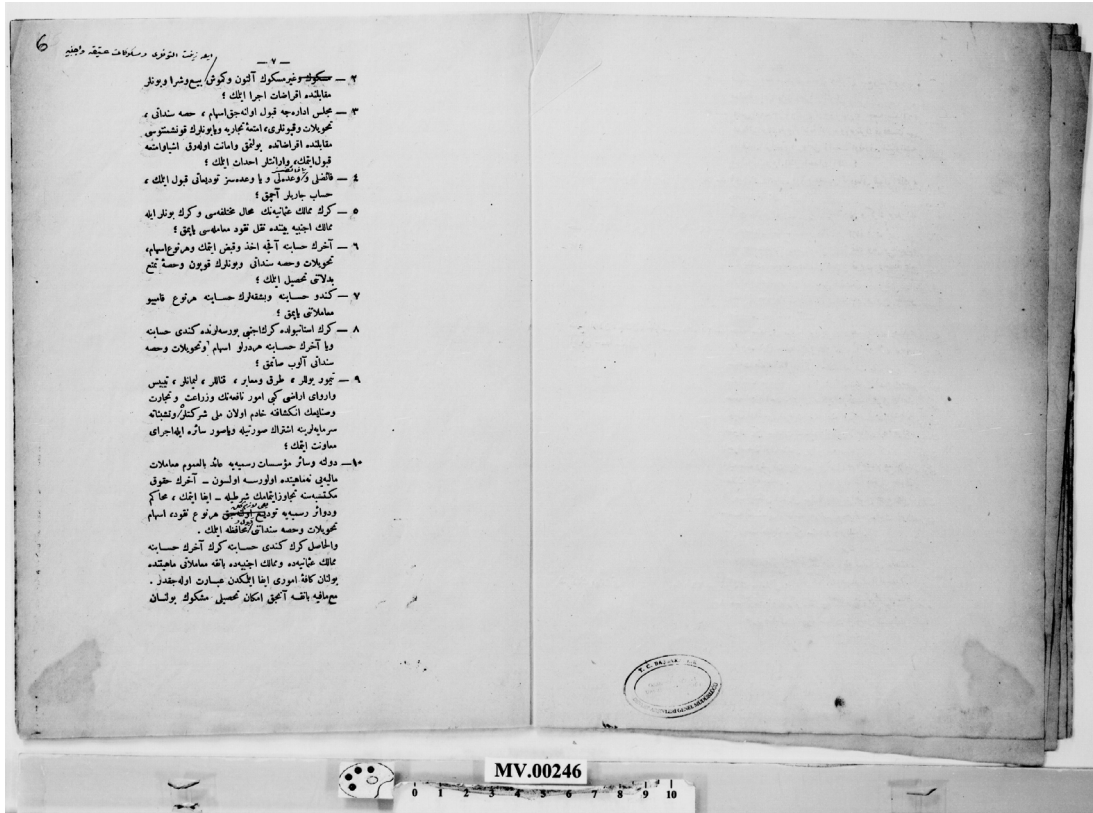 6
— ٧ —
٢ — مسكوك وغير مسكوك آلتون وكوش بيع وشرا وبونلر
مقابلنده اقراضات اجرا ايتمك ؛
٣ — مجلس اداره‌جه قبول اولنه‌جق اسهام ، حصه سنداتى ،
تحويلات وقپونلرى، امتعۀ تجاريه ويا بونلرك قونشمنتوسى
مقابلنده اقراضاتده بولنمق وامانت اوله‌رق اشيا وامتعه
قبول ايتمك، وارانتلر احداث ايتمك ؛
٤ — فائضلى و وعده‌لى ويا وعده‌سز توديعاتى قبول ايتمك ،
حساب جاريلر آچمق ؛
٥ — كرك ممالك عثمانيه‌نك محال مختلفه‌سى وكرك بونلر ايله
ممالك اجنبيه بيننده نقل نقود معامله‌سى ياپمق ؛
٦ — آخرك حسابنه آقچه اخذ وقبض ايتمك وهر نوع اسهام،
تحويلات وحصه سنداتى وبونلرك قوپون وحصۀ تمتع
بدلاتنى تحصيل ايتمك ؛
٧ — كندو حسابنه وبشقه‌لرك حسابنه هر نوع قامبيو
معاملاتنى ياپمق ؛
٨ — كرك استانبولده كرك اجنبى بورسه‌لرنده كندى حسابنه
ويا آخرك حسابنه هردرلو اسهام وتحويلات وحصه
سنداتى آلوب صاتمق ؛
٩ — تيمور يوللر ، طرق ومعابر ، قناللر ، ليمانلر ، تيبيس
وارواى اراضى كبى امور نافعه‌نك وزراعت وتجارت
وصنايعك انكشافنه خادم اولان ملى شركتلر وتشبثاته
سرمايه‌لرينه اشتراك صورتيله وياصور سائره ايله اجراى
معاونت ايتمك ؛
١٠ — دولته وسائر مؤسسات رسميه‌يه عائد بالعموم معاملات
ماليه‌يى نه ماهيتده اولورسه اولسون — آخرك حقوق
مكتسبه‌سنه تجاوز ايتمامك شرطيله — ايفا ايتمك ، محاكم
ودوائر رسميه‌يه توديع اولنه‌جق هر نوع نقود، اسهام
تحويلات وحصه سنداتنى محافظه ايتمك .
والحاصل كرك كندى حسابنه كرك آخرك حسابنه
ممالك عثمانيه‌ده وممالك اجنبيه‌ده بانقه معاملاتى ماهيتنده
بولنان كافۀ امورى ايفا ايتمكدن عبارت اوله‌جقدر .
مع مافيه بانقه آنجق امكان تحصيلى مشكوك بولنان
MV.00246
0 1 2 3 4 5 6 7 8 9 10